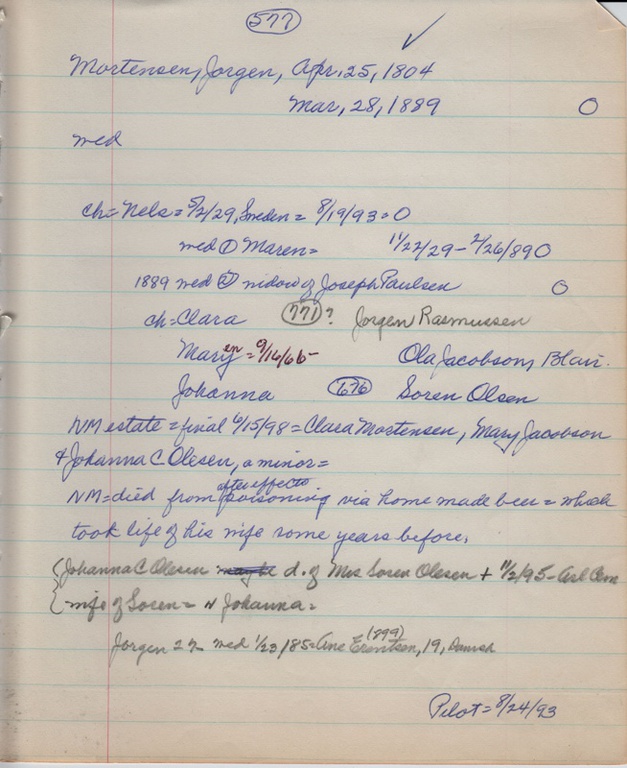 577 ✓
Mortensen, Jorgen, Apr. 25, 1804
Mar, 28, 1889 O
wed
ch = Nels = 5/2/29, Sweden = 8/19/93 = O
wed ① Maren = 11/22/29 - 2/26/89 O
1889 wed ② widow of Joseph Paulsen O
ch = Clara 771? Jorgen Rasmussen
Maryen = 9/16/66 - Ola Jacobson, Blair.
Johanna 676 Soren Olsen
NM estate = final 6/15/98 = Clara Mortensen, Mary Jacobson
& Johanna C. Olesen, a minor =
NM = died from after effects poisoning via home made beer = which
took life of his wife some years before.
Johanna C Olesen maybe d. of Mrs Soren Olesen + 11/2/95 - Arl Cem
wife of Soren = N Johanna =
Jorgen 27 wed 1/23/85 = Ane Erentsen, (899) 19, Danish
Pilot = 8/24/93